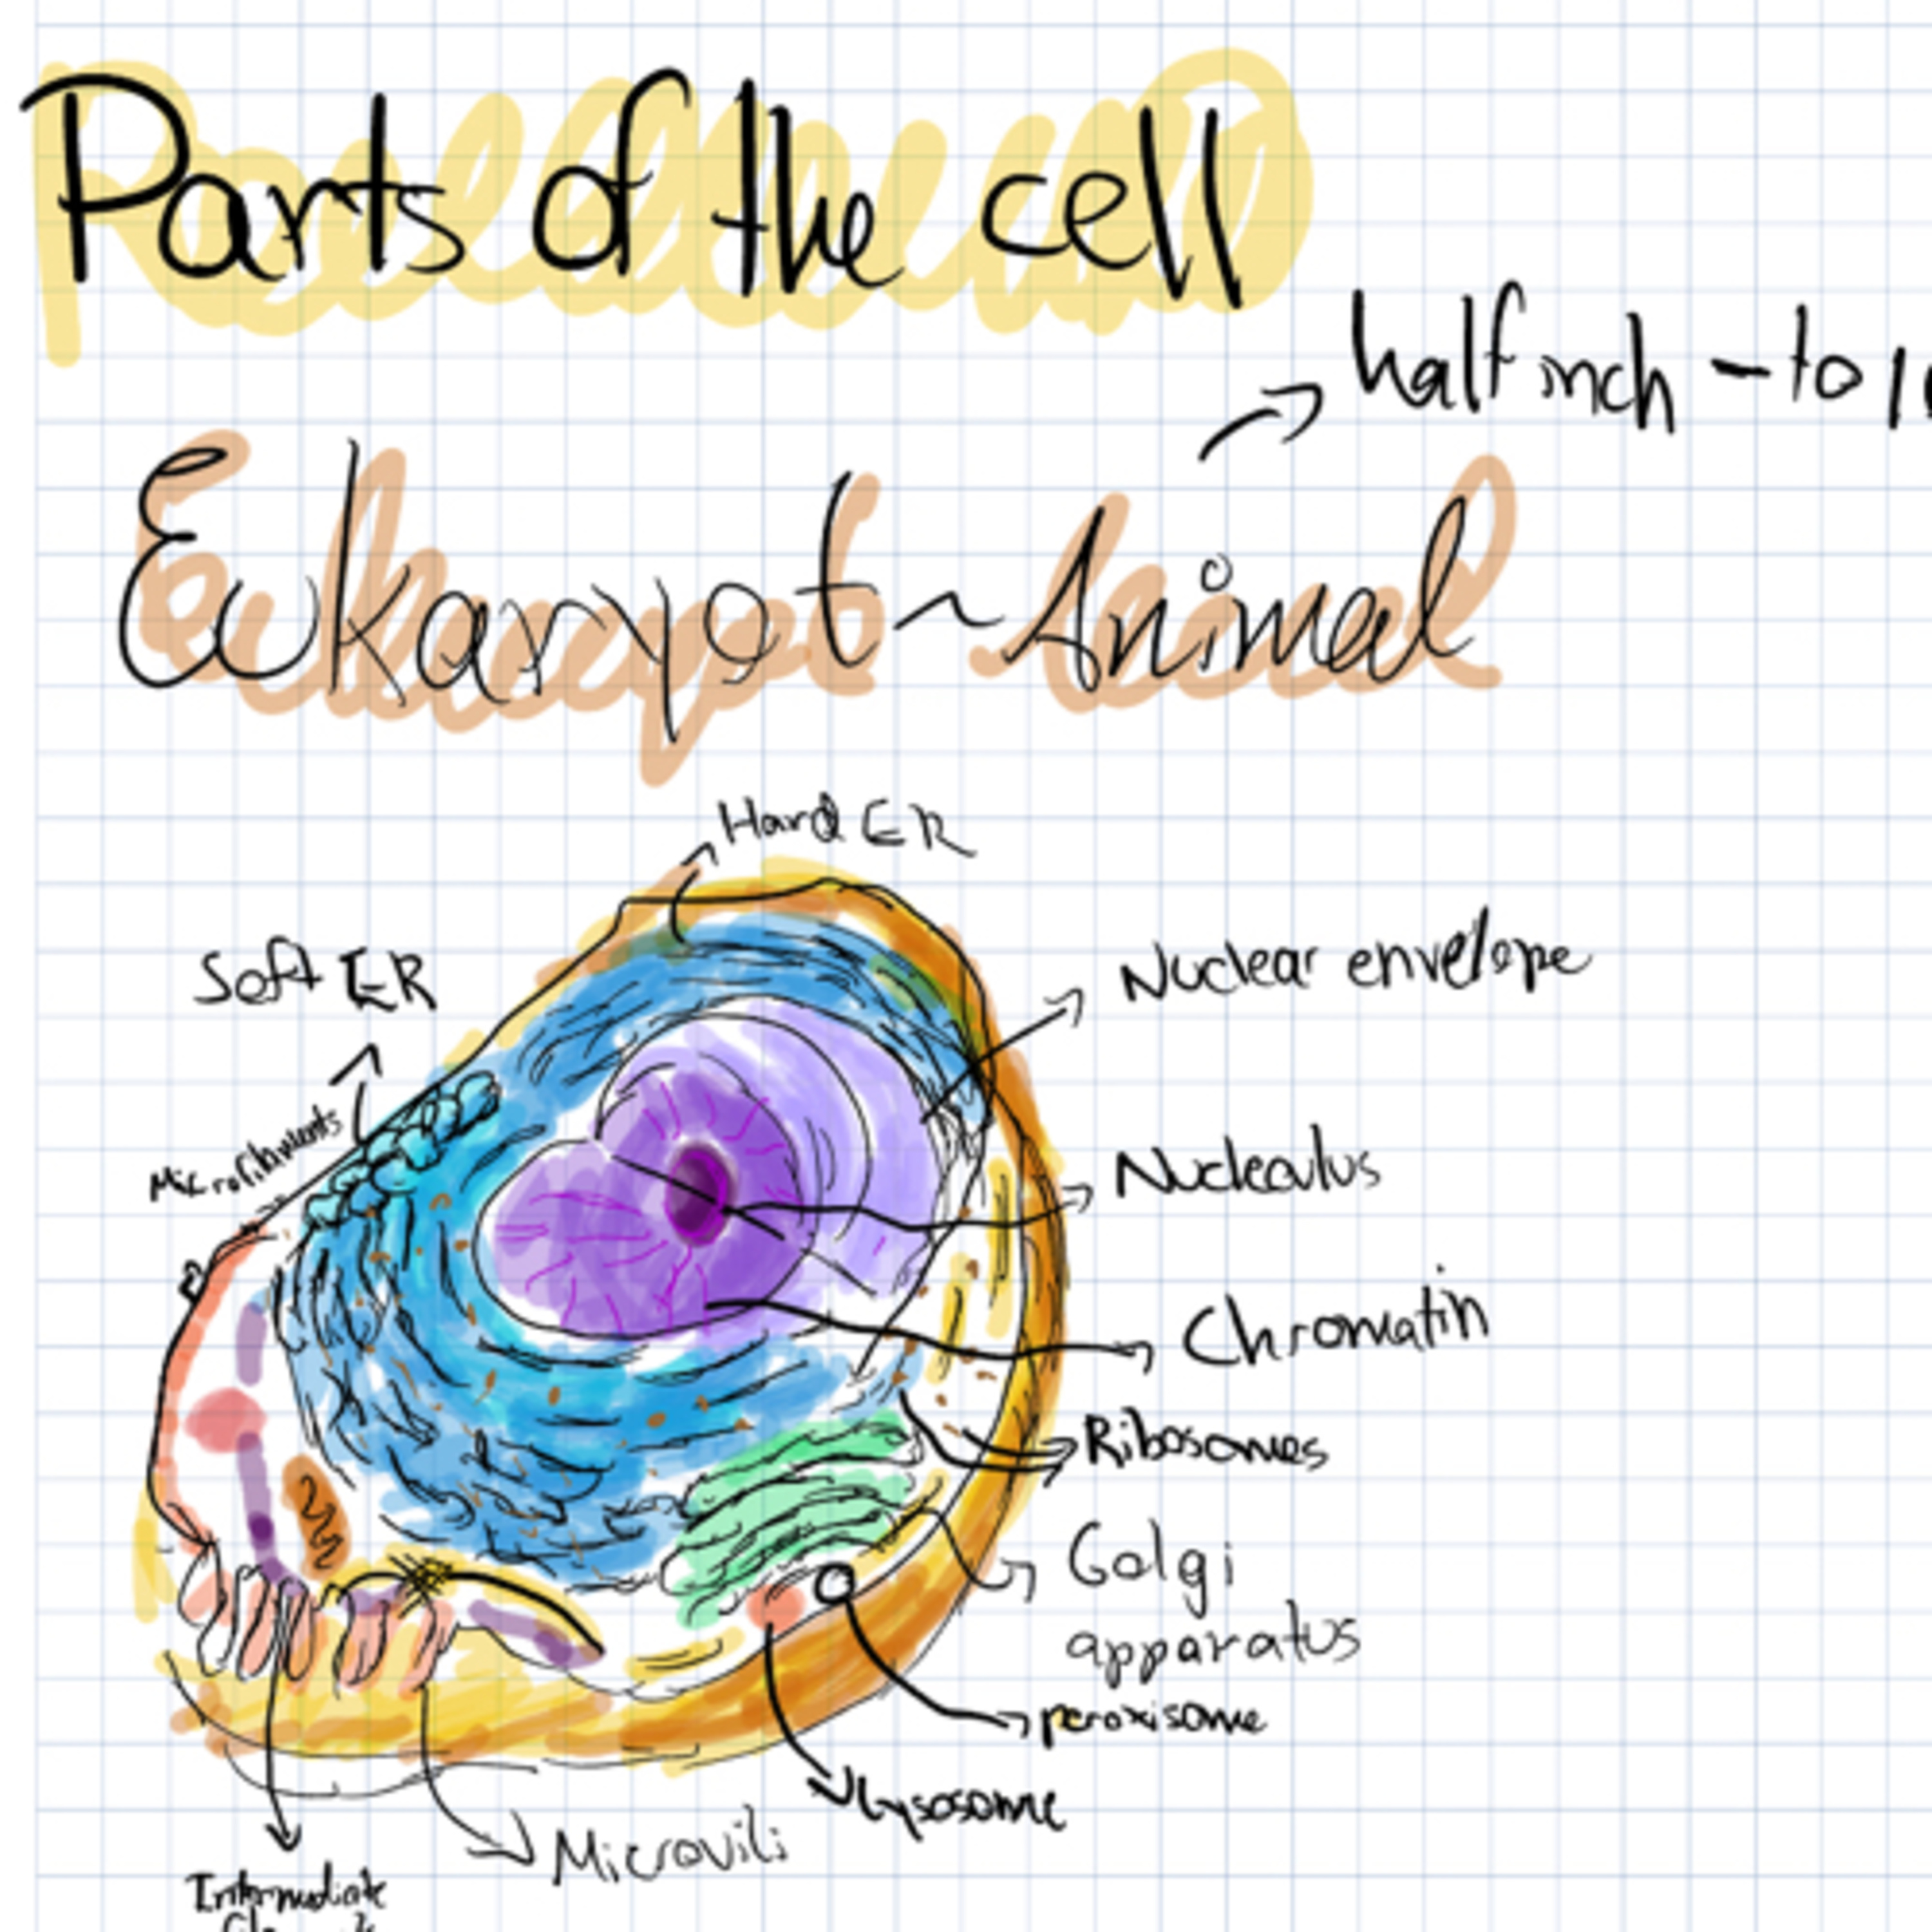 Parts of the cell
half inch - to 1
Eukaryot ~ Animal
Hard ER
Soft ER
Nuclear envelope
Microfilaments
Nucleolus
Chromatin
Ribosomes
Golgi
apparatus
peroxisome
Lysosome
Microvili
Intermediate